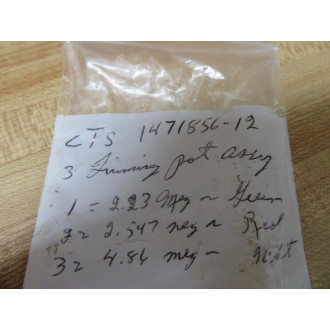 CTS 1471856-12
3 Timing pot assy
1 = 2.23 Meg ~
2 = 2.547 meg ~ Red
3 = 4.86 meg -